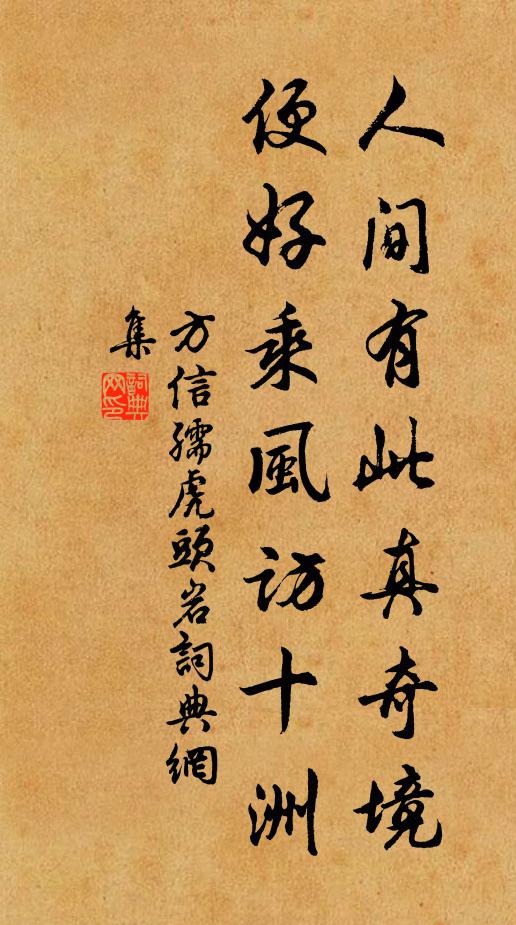 人間有此真奇境
便好乘風訪十洲
方信孺虎頭岩詞典網
集
詞典
网印